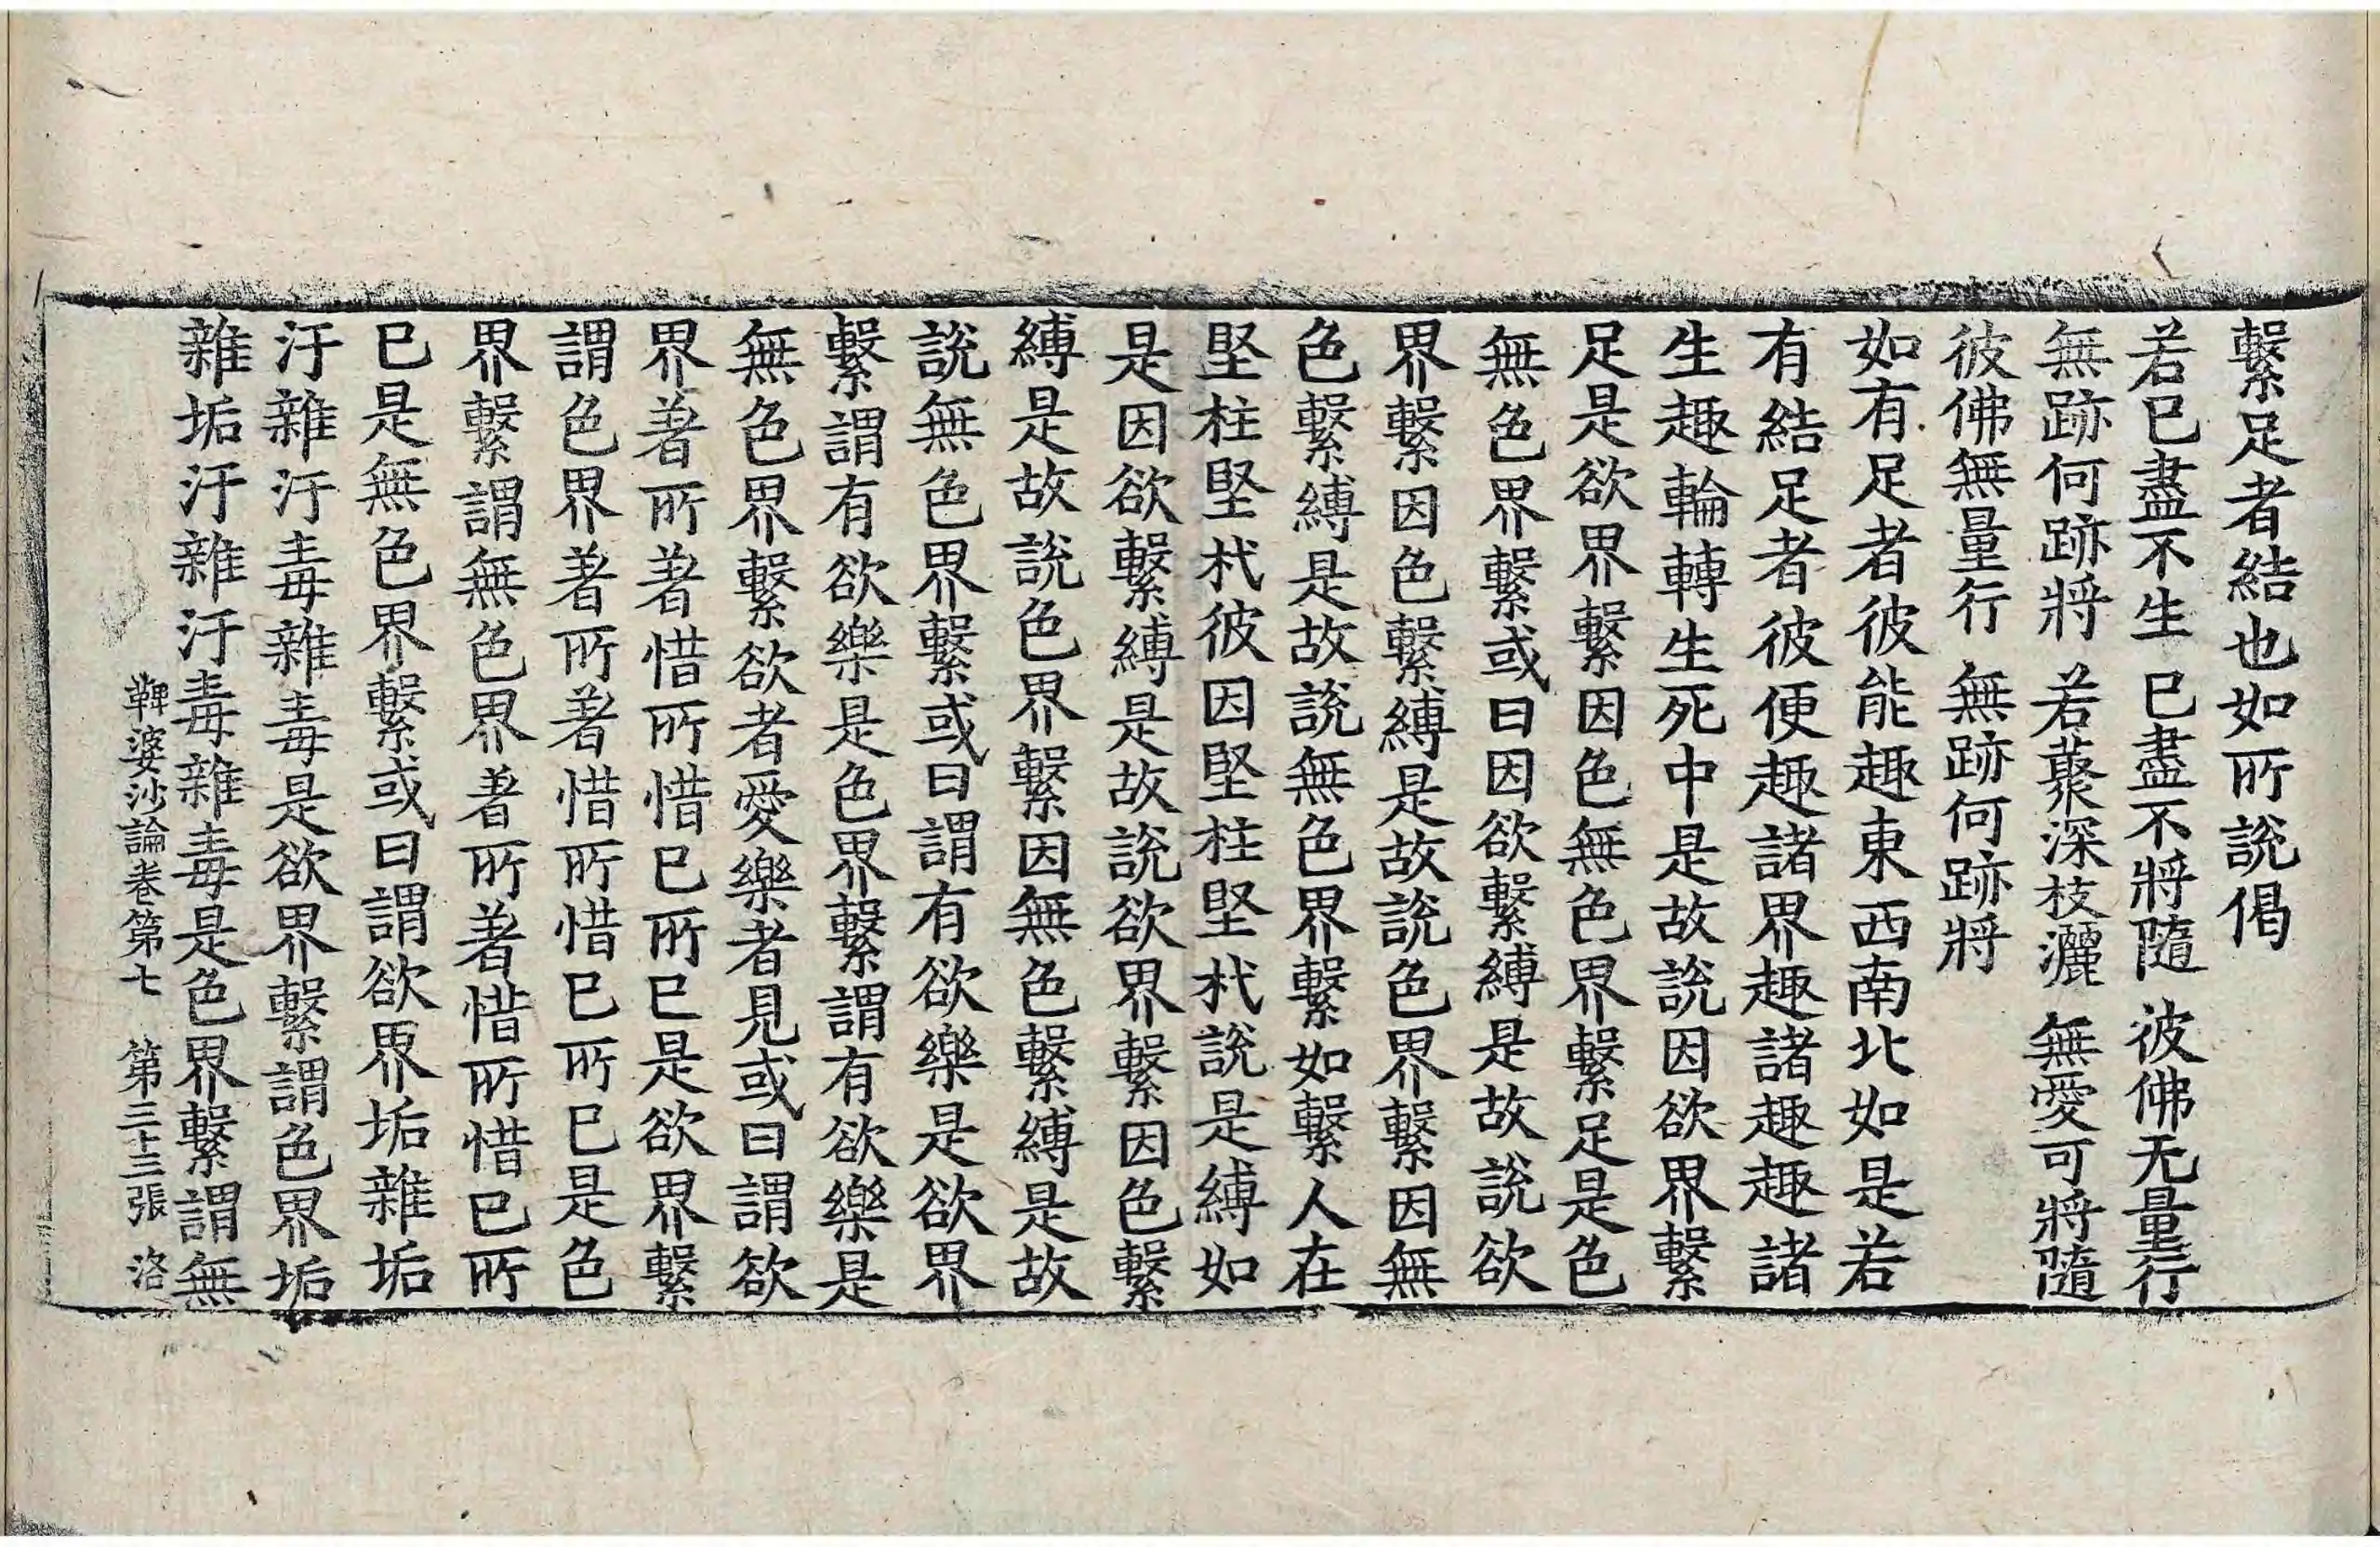 繫足者結也如所說偈
若已盡不生 已盡不將隨 彼佛无量行
無跡何跡將 若蘽深枝灑 無愛可將隨
彼佛無量行 無跡何跡將
如有足者彼能趣東西南北如是若
有結足者彼便趣諸界趣諸趣趣諸
生趣輪轉生死中是故說因欲界繫
足是欲界繫因色無色界繫足是色
無色界繫或曰因欲繫縛是故說欲
界繫因色繫縛是故說色界繫因無
色繫縛是故說無色界繫如繫人在
堅柱堅杙彼因堅柱堅杙說是縛如
是因欲繫縛是故說欲界繫因色繫
縛是故說色界繫因無色繫縛是故
說無色界繫或曰謂有欲樂是欲界
繫謂有欲樂是色界繫謂有欲樂是
無色界繫欲者愛樂者見或曰謂欲
界著所著惜所惜已所已是欲界繫
謂色界著所著惜所惜已所已是色
界繫謂無色界著所著惜所惜已所
已是無色界繫或曰謂欲界垢雜垢
汙雜汙毒雜毒是欲界繫謂色界垢
雜垢汙雜汙毒雜毒是色界繫謂無
鞞婆沙論卷第七 第三十三張 洛